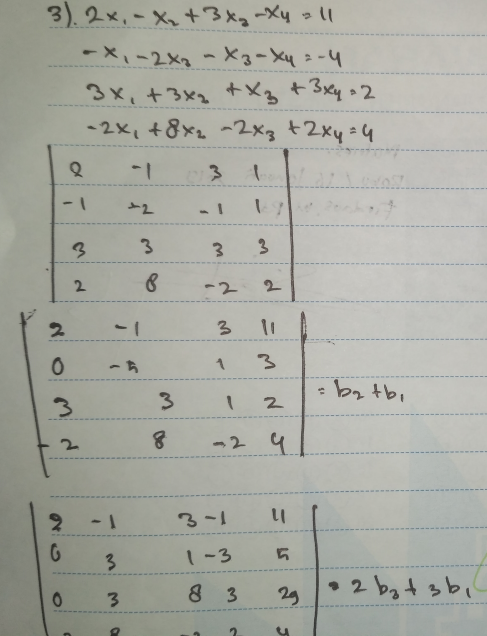 3). 2x₁ - x₂ + 3x₃ - x₄ = 11
-x₁ - 2x₃ - x₃ - x₄ = -4
3x₁ + 3x₂ + x₃ + 3x₄ = 2
-2x₁ + 8x₂ - 2x₃ + 2x₄ = 4
2 -1 3 1
-1 +2 -1 1
3 3 3 3
2 8 -2 2
2 -1 3 11
0 -5 1 3
= b₂ + b₁
3 3 1 2
-2 8 -2 4
2 -1 3 -1 11
0 3 1 -3 5
0 3 8 3 29
2 b₃ + 3 b₁